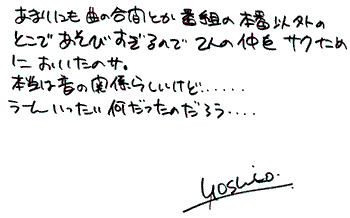 あまりにも曲の合間とか番組の本番以外の
とこであそびすぎるので2人の仲をサクため
においたのサ。
本当は音の関係らしいけど......
うーんいったい何だったのだろう....
yoshiko.